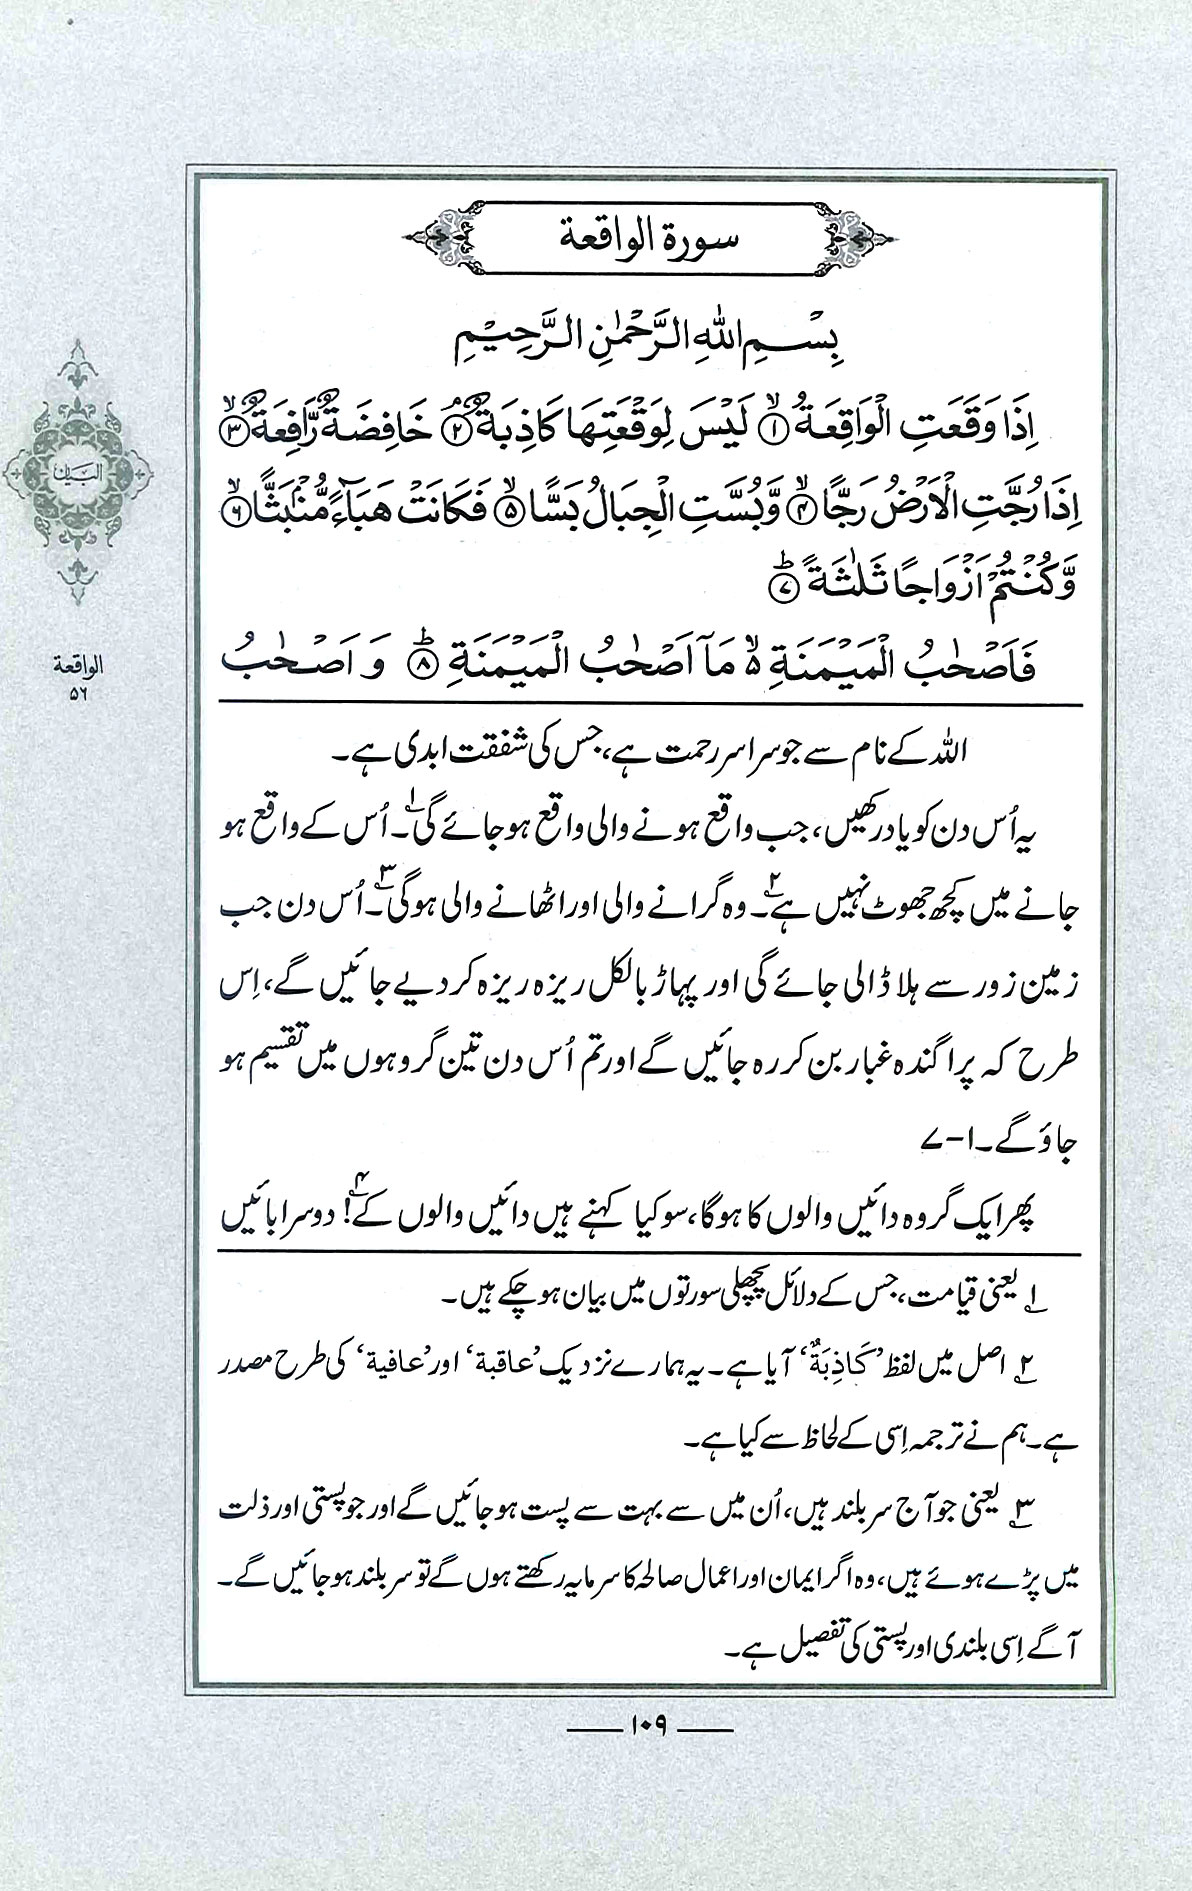 سورة الواقعة
بِسْمِ اللّٰهِ الرَّحْمٰنِ الرَّحِیْمِ
اِذَا وَقَعَتِ الْوَاقِعَةُ ۙ﴿۱﴾ لَیْسَ لِوَقْعَتِهَا كَاذِبَةٌ ۘ﴿۲﴾ خَافِضَةٌ رَّافِعَةٌ ۙ﴿۳﴾
اِذَا رُجَّتِ الْاَرْضُ رَجًّا ۙ﴿۴﴾ وَّبُسَّتِ الْجِبَالُ بَسًّا ۙ﴿۵﴾ فَكَانَتْ هَبَآءً مُّنْۢبَثًّا ۙ﴿۶﴾
وَّكُنْتُمْ اَزْوَاجًا ثَلٰثَةً ؕ﴿۷﴾
فَاَصْحٰبُ الْمَیْمَنَةِ ۙ۬ مَاۤ اَصْحٰبُ الْمَیْمَنَةِ ؕ﴿۸﴾ وَ اَصْحٰبُ
البیان
الواقعة
۵۶
اللہ کے نام سے جو سراسر رحمت ہے، جس کی شفقت ابدی ہے۔
یہ اُس دن کو یاد رکھیں، جب واقع ہونے والی واقع ہو جائے گی۱۔ اُس کے واقع ہو
جانے میں کچھ جھوٹ نہیں ہے۲۔ وہ گرانے والی اور اٹھانے والی ہو گی۳۔ اُس دن جب
زمین زور سے ہلا ڈالی جائے گی اور پہاڑ بالکل ریزہ ریزہ کر دیے جائیں گے، اِس
طرح کہ پراگندہ غبار بن کر رہ جائیں گے اور تم اُس دن تین گروہوں میں تقسیم ہو
جاؤ گے۔ ۱-۷
پھر ایک گروہ دائیں والوں کا ہو گا، سو کیا کہنے ہیں دائیں والوں کے۴! دوسرا بائیں
۱؎ یعنی قیامت، جس کے دلائل پچھلی سورتوں میں بیان ہو چکے ہیں۔
۲؎ اصل میں لفظ ’كَاذِبَةٌ‘ آیا ہے۔ یہ ہمارے نزدیک ’عاقبة‘ اور ’عافية‘ کی طرح مصدر
ہے۔ ہم نے ترجمہ اِسی کے لحاظ سے کیا ہے۔
۳؎ یعنی جو آج سربلند ہیں، اُن میں سے بہت سے پست ہو جائیں گے اور جو پستی اور ذلت
میں پڑے ہوئے ہیں، وہ اگر ایمان اور اعمال صالحہ کا سرمایہ رکھتے ہوں گے تو سربلند ہو جائیں گے۔
آگے اِسی بلندی اور پستی کی تفصیل ہے۔
۱۰۹